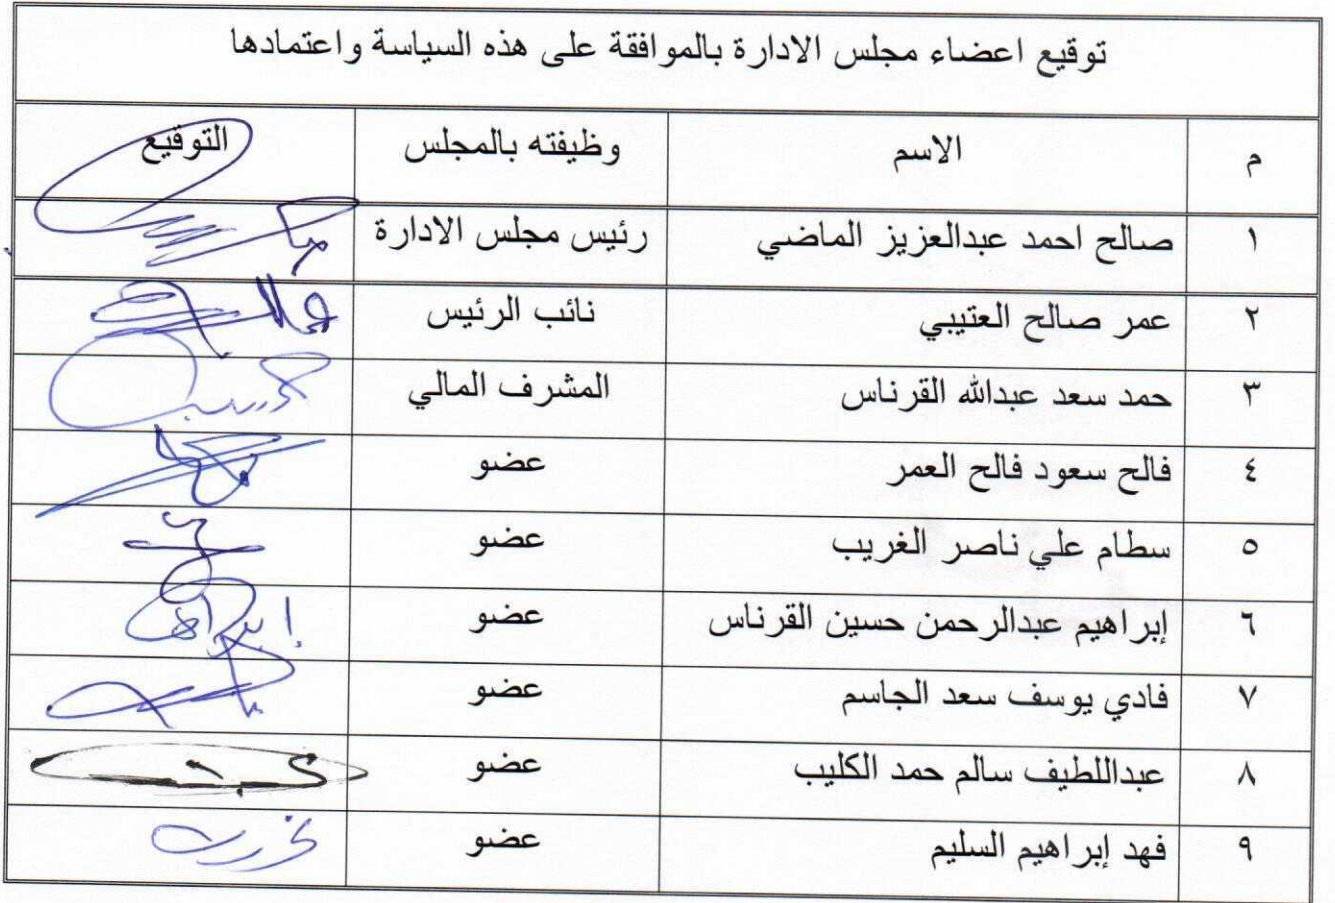 توقيع اعضاء مجلس الادارة بالموافقة على هذه السياسة واعتمادها
م الاسم وظيفته بالمجلس التوقيع
١ صالح احمد عبدالعزيز الماضي رئيس مجلس الادارة
٢ عمر صالح العتيبي نائب الرئيس
٣ حمد سعد عبدالله القرناس المشرف المالي
٤ فالح سعود فالح العمر عضو
٥ سطام علي ناصر الغريب عضو
٦ إبراهيم عبدالرحمن حسين القرناس عضو
٧ فادي يوسف سعد الجاسم عضو
٨ عبداللطيف سالم حمد الكليب عضو
٩ فهد إبراهيم السليم عضو